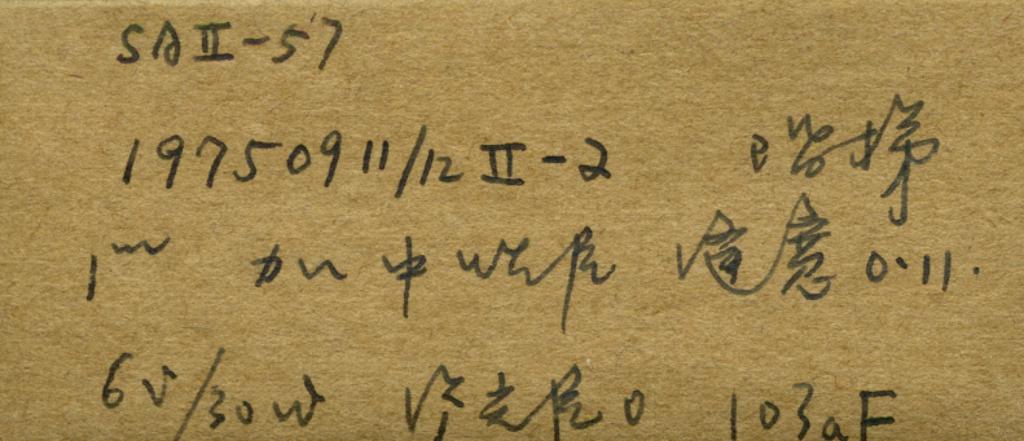 SA II-57
19750911/12 II-2 阶梯
1m 加中性片 速意 0.11.
6V/30W 光片0 103aF